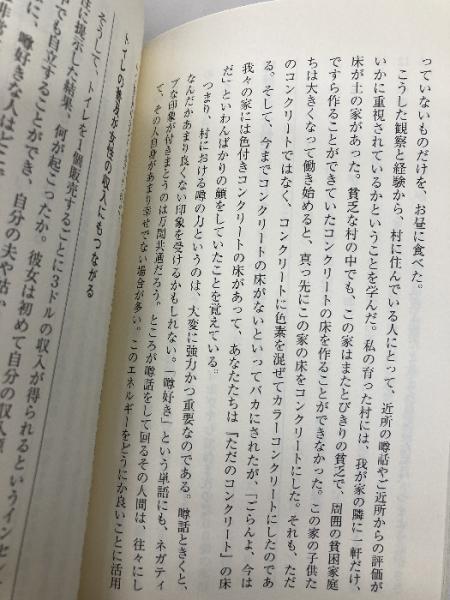 っていないものだけを、お昼に食べた。
こうした観察と経験から、村に住んでいる人にとって、近所の噂話やご近所からの評価が
いかに重視されているかということを学んだ。私の育った村には、我が家の隣に一軒だけ、
床が土の家があった。貧乏な村の中でも、この家はまたとびきりの貧乏で、周囲の貧困家庭
ですら作ることができていたコンクリートの床を作ることができなかった。この家の子供た
ちは大きくなって働き始めると、真っ先にこの家の床をコンクリートにした。それも、ただ
のコンクリートではなく、コンクリートに色素を混ぜてカラーコンクリートにしたのであ
る。そして、今までコンクリートの床がないといってバカにされたが、「ごらんよ、今は
我々の家には色付きコンクリートの床があって、あなたたちは『ただのコンクリート』の床
だ」といわんばかりの顔をしていたことを覚えている。
つまり、村における噂の力というのは、大変に強力かつ重要なのである。噂話ときくと、
なんだかあまり良くない印象を受けるかもしれない。「噂好き」という単語にも、ネガティ
ブな印象が付きまとうのは万国共通だろう。ところが噂話をして回るその人間は、往々にし
て、その人自身があまり幸せでない場合が多い。このエネルギーをどうにか良いことに活用
トイレの
が女性の収入にもつながる
そうして、トイレを1個販売するごとに3ドルの収入が得られるというインセン
に提示した結果、何が起こったか。彼女は初めて自分の収入源
でも自立することができ、自分の夫や姑
噂好きな人は